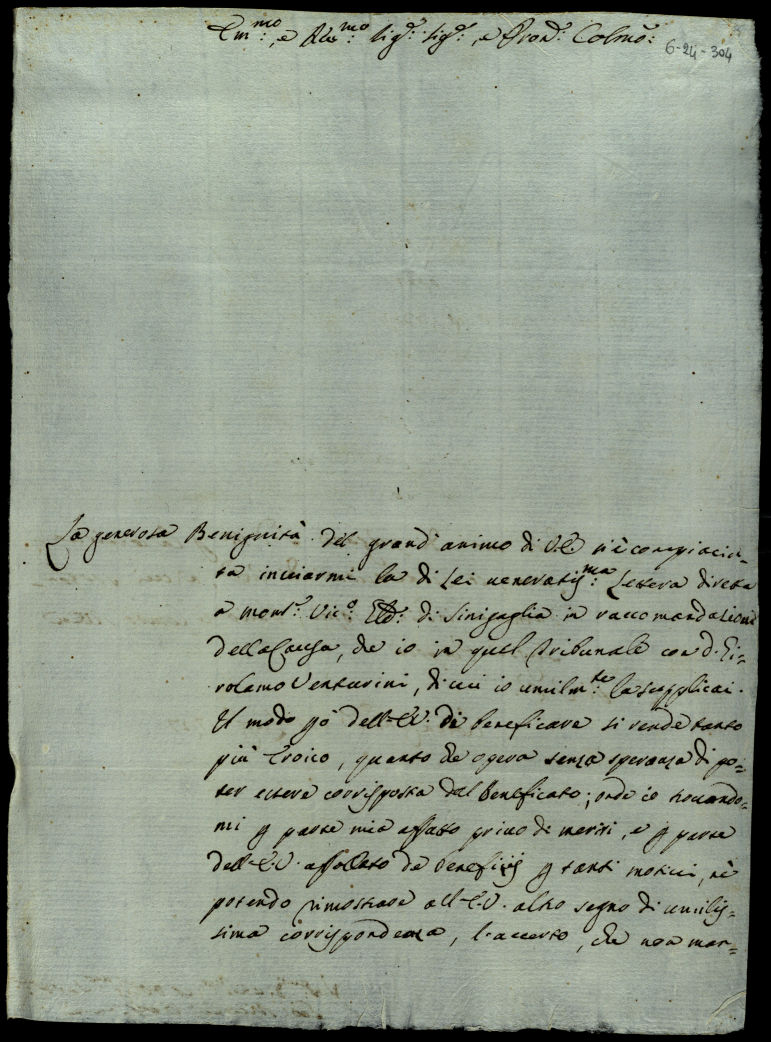 Em:mo, e Rev:mo Sig:r Sig:r, e Pron: Colmo:
6-24-304
La generosa Benignità del grand'animo di V.E. s'è compiaciu-
ta inviarmi la di Lei veneratiss:ma Lettera diretta
a mons:r Vic:o Gle: di Sinigaglia in raccomandazione
della Causa, che io in quel Tribunale con d. Gi-
rolamo Venturini, di cui io umilm:te la supplicai.
Il modo però dell'E.V. di beneficare si rende tanto
più Eroico, quanto che opera senza speranza di po-
ter essere corrisposta dal Beneficato; onde io trovando-
mi p parte mia affatto privo di meriti, e p parte
dell'E.V. affollato de beneficij p tanti motivi, nè
potendo rimostrare all'E.V. altro segno di umilis-
sima corrispondenza, l'accerto, che non man-